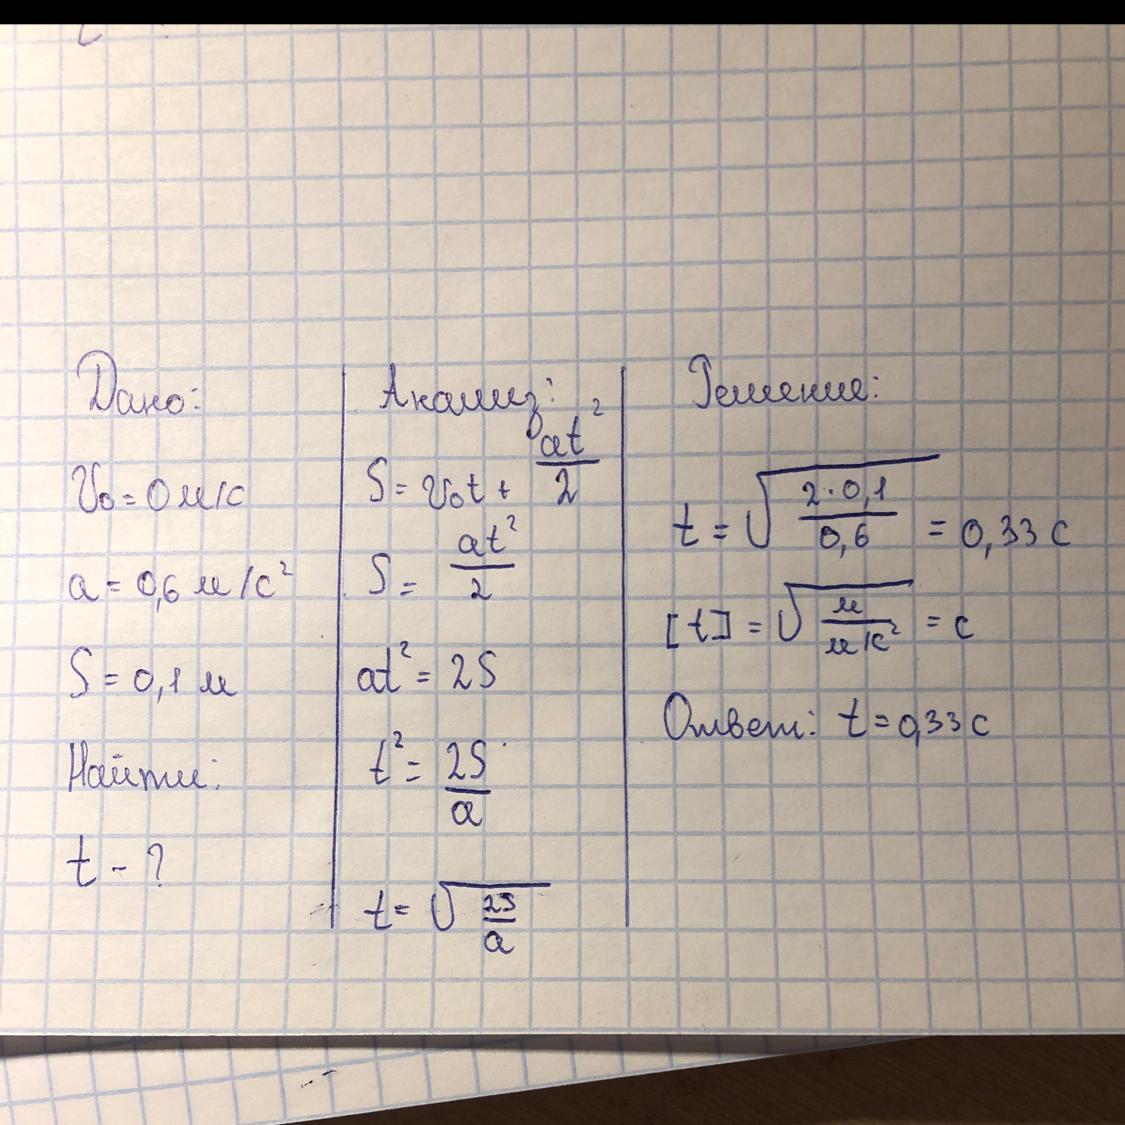 Дано:
V₀ = 0 м/с
a = 0,6 м/с²
S = 0,1 м
Найти:
t - ?
Анализ:
S = V₀t + at²/2
S = at²/2
at² = 2S
t² = 2S/a
t = √(2S/a)
Решение:
t = √(2·0,1/0,6) = 0,33 с
[t] = √(м/м/с²) = с
Ответ: t = 0,33 с